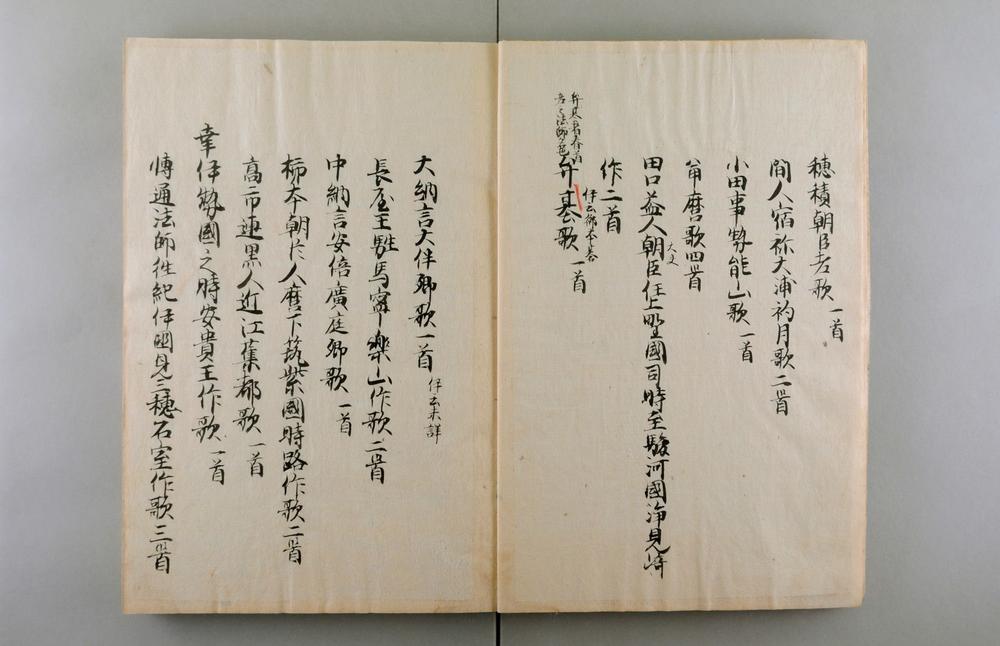 穂積朝臣老歌一首
間人宿祢大浦初月歌二首
小田事勢能山歌一首
角麿歌四首
田口益人朝臣任上野國司時至駿河國浄見埼
大夫
作二首
弁基歌一首
大納言大伴卿歌一首
伊云未詳
長屋王駐馬寧樂山作歌二首
中納言安倍廣庭卿歌一首
柿本朝臣人麿下筑紫國時路作歌二首
高市連黒人近江舊都歌一首
幸伊勢國之時安貴王作歌一首
博通法師徃紀伊國見三穂石室作歌三首